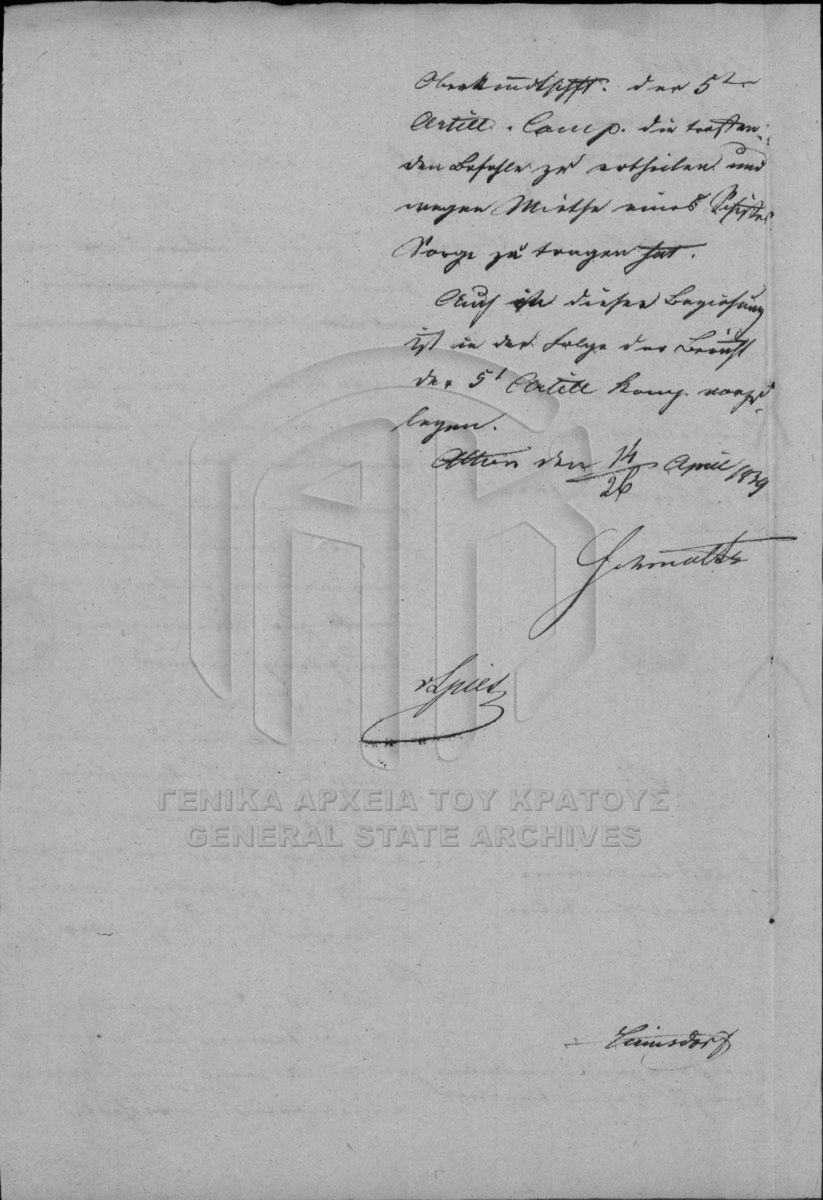 Oberkmdtschft. der 5ten
Artill. Comp. die treffen-
den Befehle zu ertheilen und
wegen Miethe eines Schiffes
Sorge zu tragen hat.
Auch in dieser Beziehung
ist in der Folge der Bericht
der 5t Artill Komp. vorzu-
legen.
Athen den 14/26 April 1839
Schmaltz
v Spies
ΓΕΝΙΚΑ ΑΡΧΕΙΑ ΤΟΥ ΚΡΑΤΟΥΣ
GENERAL STATE ARCHIVES